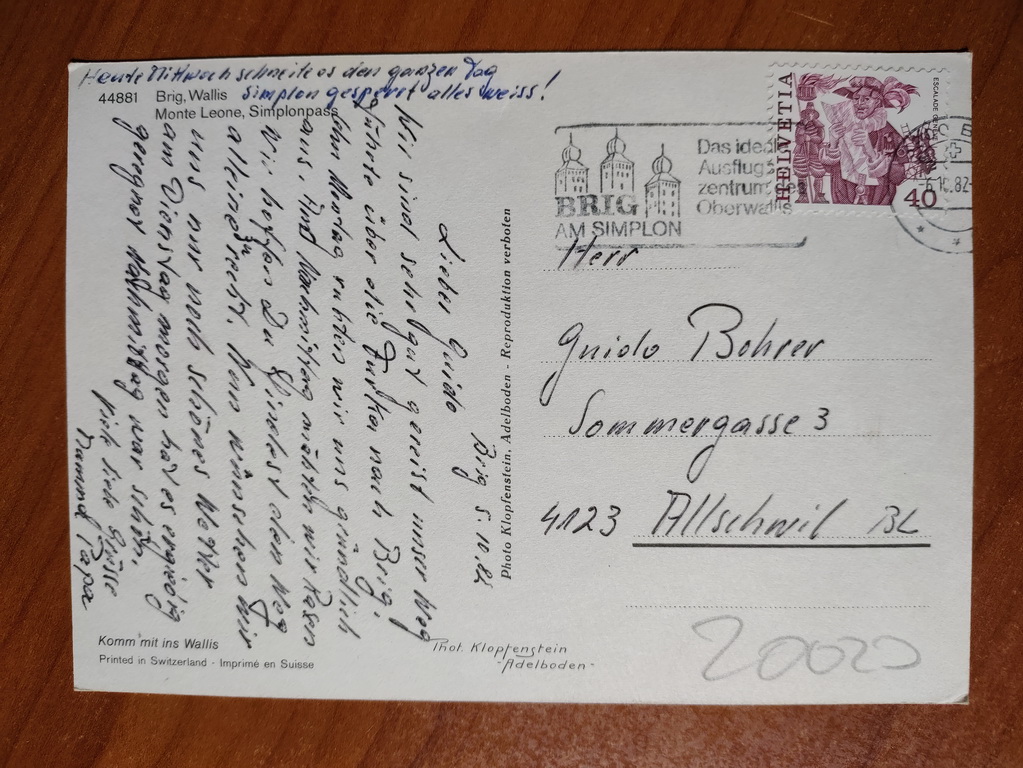 Heute Mittwoch schneite es den ganzen Tag
Simplon gesperrt alles weiss!
44881 Brig, Wallis
Monte Leone, Simplonpass
Brig 5.10.82
Lieber Guido
Wir sind sehr gut gereist unser Weg
führte über die Furka nach Brig.
Am Montag ruhten wir uns gründlich
aus. Und Nachmittag
Wir hoffen Du findest den Weg
alleine zurecht. Nun wünschen wir
uns nur noch schönes Wetter
am Dienstag morgen hat es
geregnet Nachmittag war schön.
Viele liebe Grüsse
Mamma Papa
Komm mit ins Wallis
Printed in Switzerland - Imprimé en Suisse
Phot. Klopfenstein
-Adelboden-
Photo Klopfenstein, Adelboden - Reproduktion verboten
BRIG
AM SIMPLON
Das ideale
Ausflugs
zentrum des
Oberwallis
HELVETIA
ESCALADE GENÈVE
40
-6.10.82-
Herr
Guido Bohrer
Sommergasse 3
4123 Allschwil BL
20020